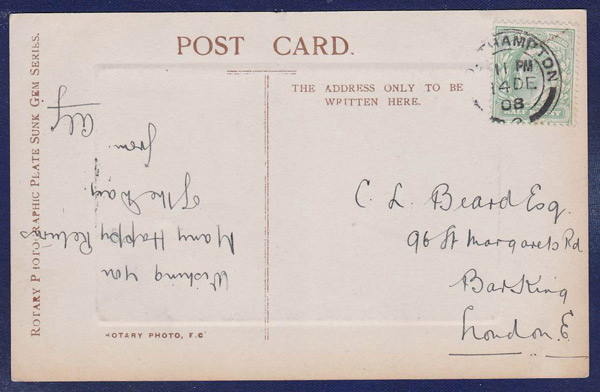 POST CARD.
THE ADDRESS ONLY TO BE
WRITTEN HERE.
HAMPTON
11 PM
14 DE
08
ROTARY PHOTOGRAPHIC PLATE SUNK GEM SERIES.
Wishing you
Many Happy Returns
Of the Day.
from
Alf
C. L. Beard Esq.
96 St Margarets Rd
Barking
London. E.
ROTARY PHOTO, E.C